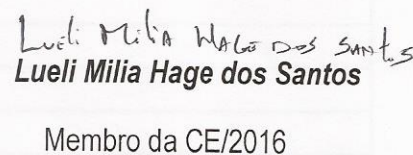 Lueli Milia Hage dos Santos
Lueli Milia Hage dos Santos
Membro da CE/2016